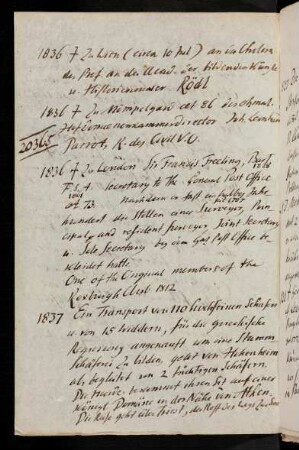 1836 † Zu Wien (circa 10 Jul) an der Cholera
der Prof. an der Acad. der bildenden Künste
u. Historienmaler Rödl
1836 † Zu Mömpelgard aet 86 der ehmal.
director Joh. Leonhard
20365
Parrot, R. des Civil V. O.
1836 † Zu London Sir Francis Freeling, Bar
F. S. A. Secretary to the General Post Office
aet 73 nachdem er fast ein halbes Jahr
hundert die Stellen eines Surveyor, Prin
cipal, and resident Surveyor, Joint Secretary
u. Sole Secretary bey dem Gen Post Office be
kleidet hatte.
One of the Original members of the
Roxburgh Club 1812
1837 Ein Transport von 110 hochfeinen Schafen
u. von 15 Widdern, für die griechische
Regierung angekauft um eine Stamm
schäferei zu bilden, geht von Hohenheim
ab, begleitet von 2 tüchtigen Schäfern.
Die bekommt ihren Sitz auf einer
königl Domäne in der Nähe von Athen.
Die Reise geht über Triest,